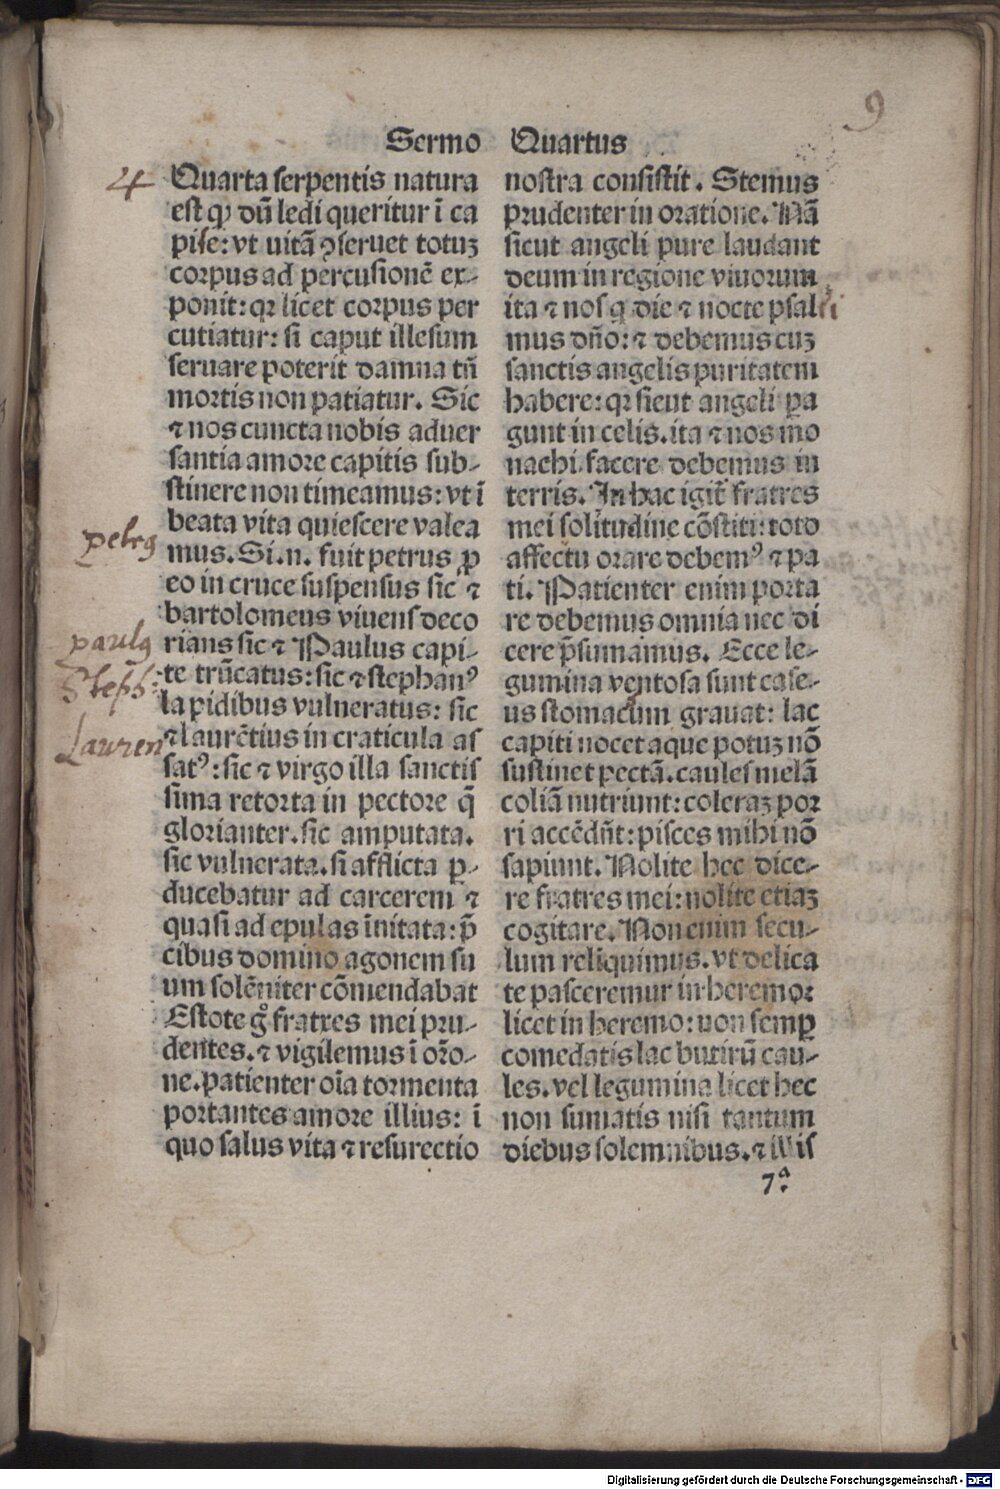 9
Sermo Quartus
4
Quarta serpentis natura
est ꝙ dū ledi queritur ī ca
pite: vt uitā ꝯseruet totuʒ
corpus ad percusionē ex-
ponit: qꝛ licet corpus per
cutiatur: si caput illesum
seruare poterit damna tñ
mortis non patiatur. Sic
⁊ nos cuncta nobis aduer
santia amore capitis sub-
stinere non timeamus: vt ī
beata vita quiescere valea
petrꝰ
mus. Si.n. fuit petrus ꝓ
eo in cruce suspensus sic ⁊
bartolomeus viuens deco
paulꝰ
rians sic ⁊ Paulus capi-
Steph:
te trūcatus: sic ⁊ stephanꝰ
lapidibus vulneratus: sic
Lauren
⁊ laurētius in craticula as
satꝰ: sic ⁊ virgo illa sanctis
sima retorta in pectore q̄
glorianter. sic amputata.
sic vulnerata. si afflicta ꝑ-
ducebatur ad carcerem ⁊
quasi ad epulas īnitata: p̄
cibus domino agonem su
um solēniter cōmendabat
Estote gͦ fratres mei pru-
dentes. ⁊ vigilemus ī oꝛ̄o-
ne. patienter oīa tormenta
portantes amore illius: ī
quo salus vita ⁊ resurectio
nostra consistit. Stemus
prudenter in oratione. Nā
sicut angeli pure laudant
deum in regione viuorum
ita ⁊ nos q̄ die ⁊ nocte psalli
mus dño: ⁊ debemus cuʒ
sanctis angelis puritatem
habere: qꝛ sicut angeli ꝑa
gunt in celis. ita ⁊ nos mo
nachi facere debemus in
terris. In hac igit̄ fratres
mei solitudine cōstiti: toto
affectu orare debemꝰ ⁊ pa
ti. Patienter enim porta
re debemus omnia nec di
cere p̄sumamus. Ecce le-
gumina ventosa sunt case-
us stomacum grauat: lac
capiti nocet aque potuʒ nō
sustinet pectā. caules melā
coliā nutriunt: coleraʒ por
ri accēdūt: pisces mihi nō
sapiunt. Nolite hec dice-
re fratres mei: nolite etiaʒ
cogitare. Non enim secu-
lum reliquimus. vt delica
te pasceremur in heremo:
licet in heremo: uon semꝑ
comedatis lac butirū cau-
les. vel legumina licet hec
non sumatis nisi tantum
diebus solemnibus. ⁊ illis
7ª.
Digitalisierung gefördert durch die Deutsche Forschungsgemeinschaft - DFG